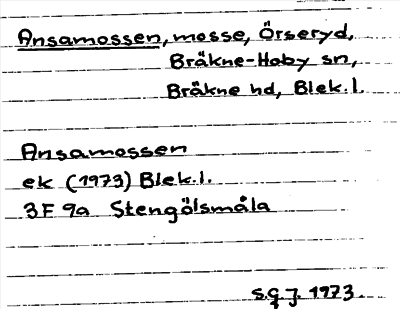 Ansamossen, mosse, Örseryd,
Bräkne-Hoby sn,
Bräkne hd, Blek.l.
Ansamossen
ek (1973) Blek.l.
3F 9a Stengölsmåla
S.G.J. 1973.